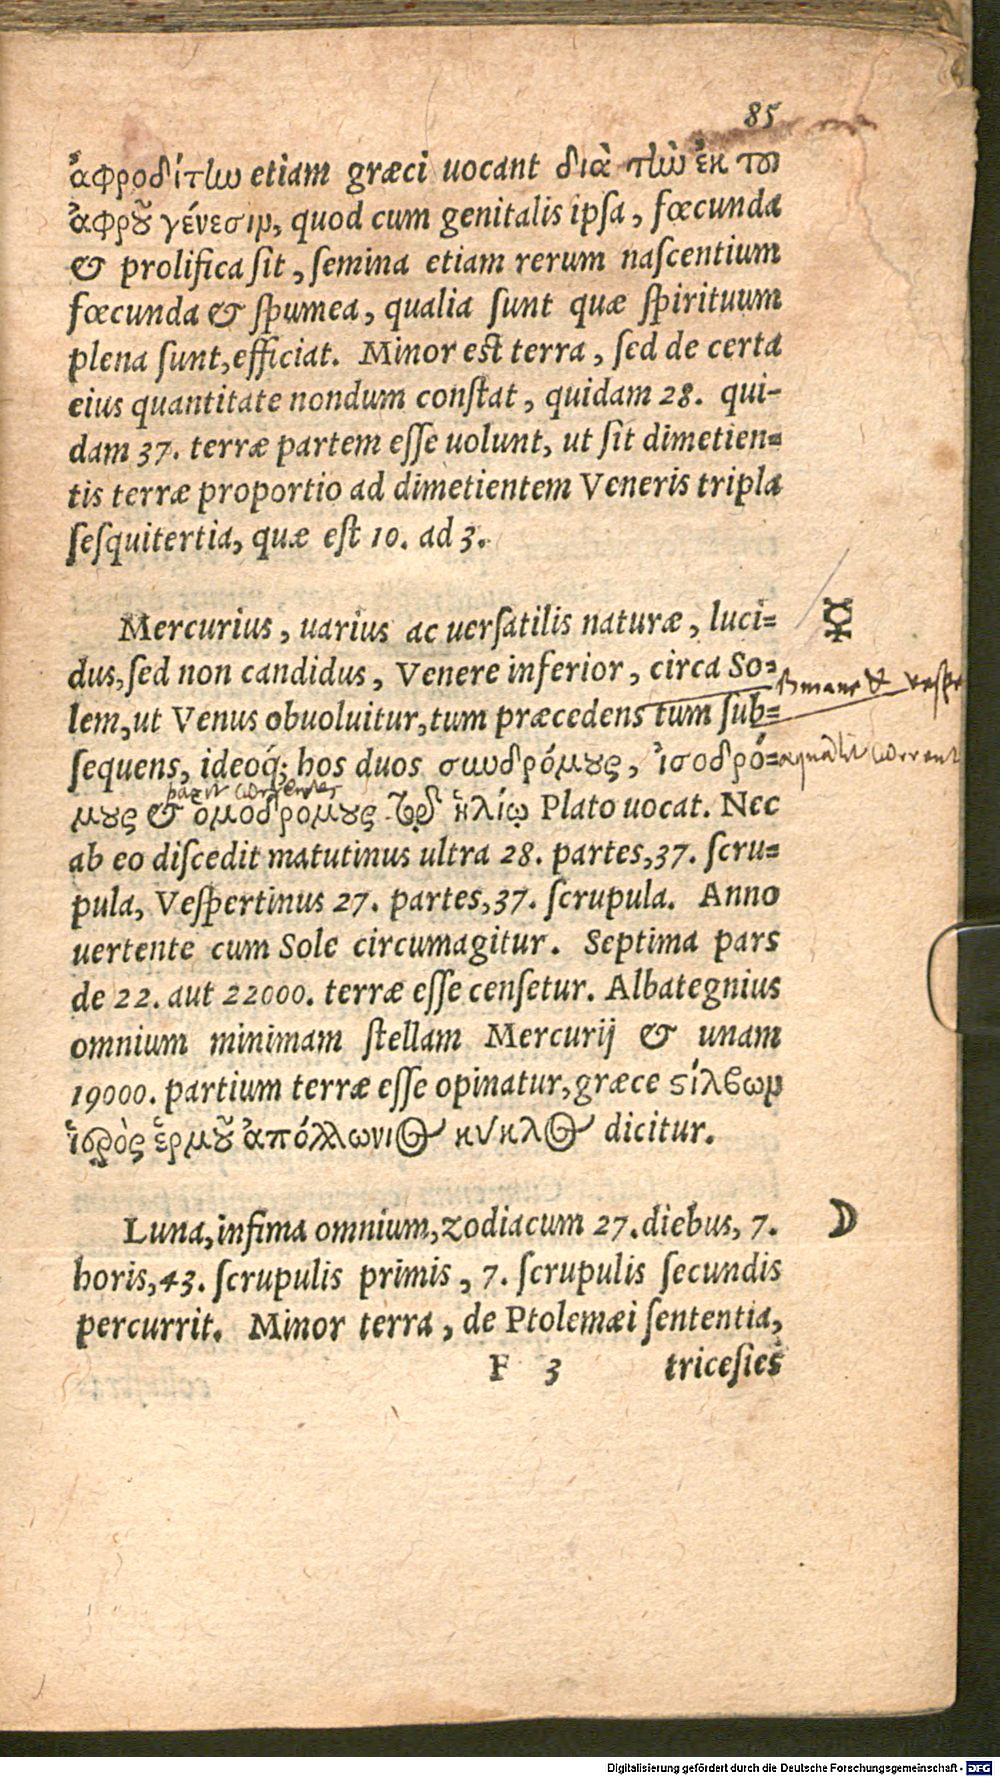 85
ἀφροδίτην etiam græci uocant διὰ τὴν ἐκ τοῦ
ἀφροῦ γένεσιν, quod cum genitalis ipſa, fœcunda
& prolifica ſit, ſemina etiam rerum naſcentium
fœcunda & ſpumea, qualia ſunt quæ ſpirituum
plena ſunt, efficiat. Minor est terra, ſed de certa
eius quantitate nondum conſtat, quidam 28. qui-
dam 37. terræ partem eſſe uolunt, ut ſit dimetien=
tis terræ proportio ad dimetientem Veneris tripla
ſeſquitertia, quæ eſt 10. ad 3.
Mercurius, uarius ac uerſatilis naturæ, luci= ☿
dus, ſed non candidus, Venere inferior, circa So=
mane & vespe
lem, ut Venus obuoluitur, tum præcedens tum ſub=
ſequens, ideoq; hos duos συνδρόμους, ἰσοδρό=
μους & ὁμοδρόμους τῷ ἡλίῳ Plato uocat. Nec
ab eo diſcedit matutinus ultra 28. partes, 37. ſcru=
pula, Veſpertinus 27. partes, 37. ſcrupula. Anno
uertente cum Sole circumagitur. Septima pars
de 22. aut 22000. terræ eſſe cenſetur. Albategnius
omnium minimam ſtellam Mercurij & unam
19000. partium terræ eſſe opinatur, græce ςίλβων
ἱερὸς ἑρμοῦ ἀπόλλωνος κύκλος dicitur.
Luna, infima omnium, zodiacum 27. diebus, 7. ☽
horis, 43. ſcrupulis primis, 7. ſcrupulis ſecundis
percurrit. Minor terra, de Ptolemæi ſententia,
F 3 triceſies
Digitalisierung gefördert durch die Deutsche Forschungsgemeinschaft - DFG